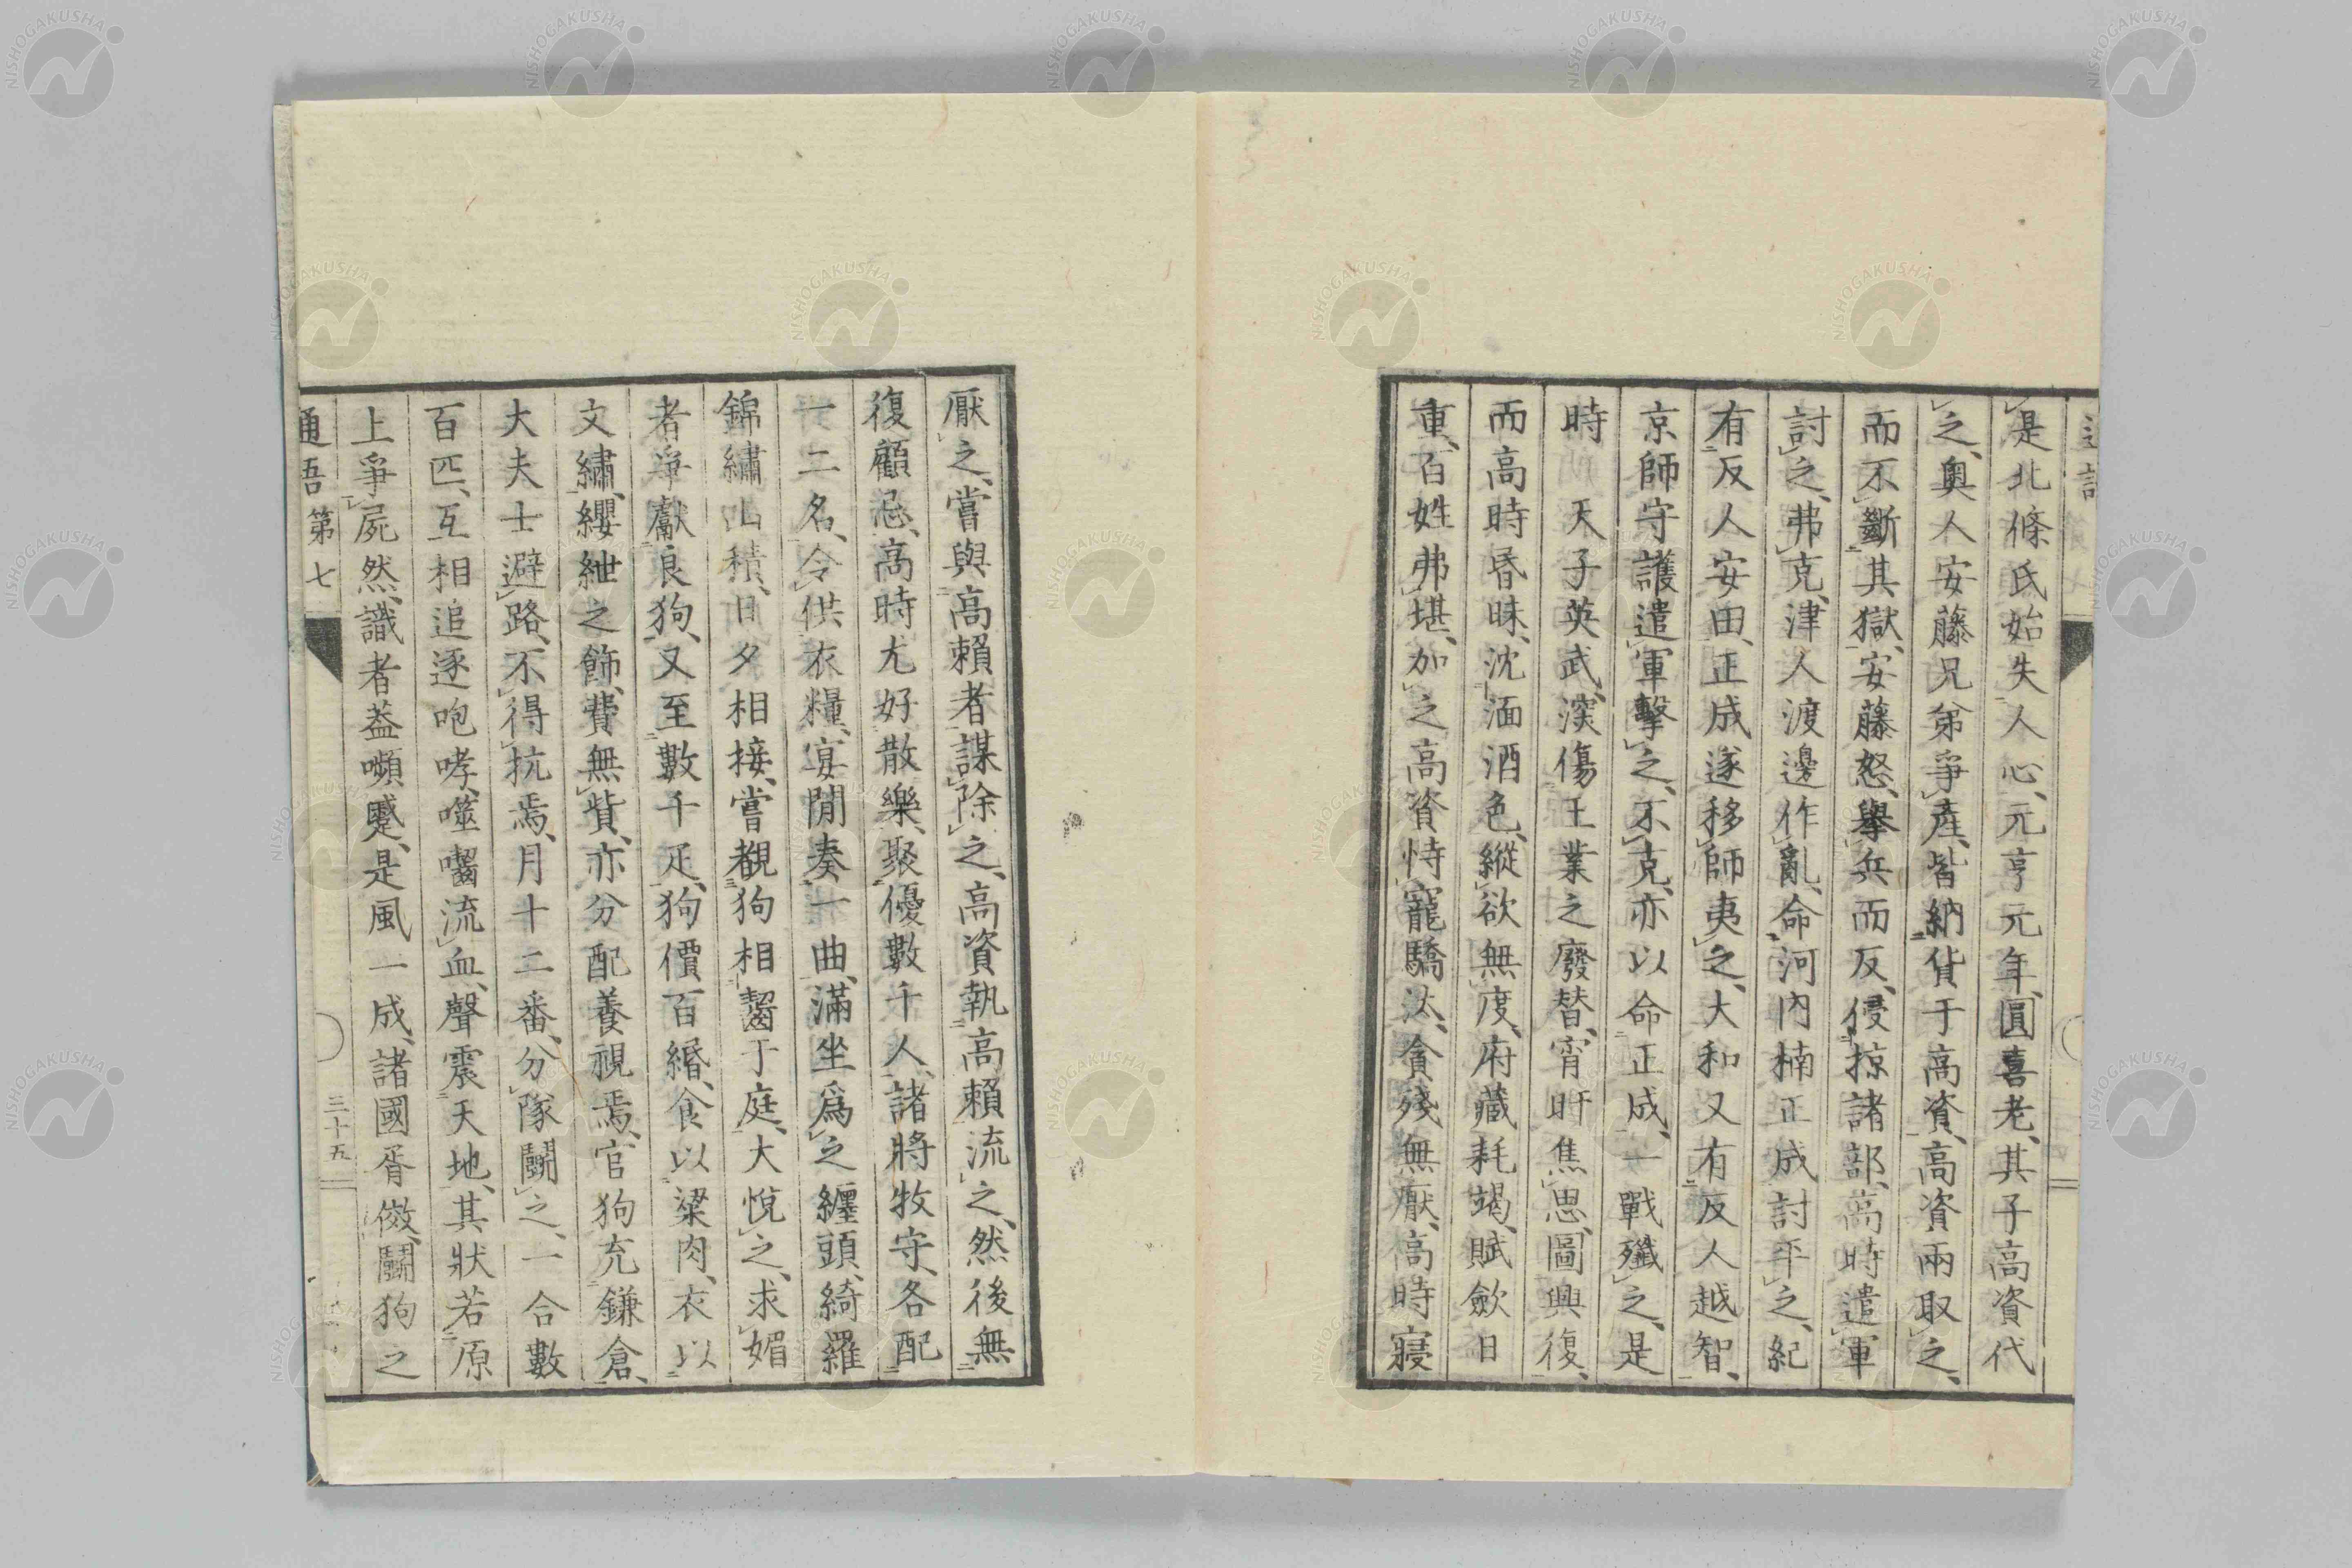 是北條氏始失人心、元亨元年、圓喜老、其子高資代
之、奧人安藤兄弟爭產、皆納貨于高資、高資兩取之、
而不斷其獄、安藤怒、擧兵而反、侵掠諸部、高時遣軍
討之、弗克、津人渡邊作亂、命河內楠正成討平之、紀
有反人安田、正成遂移師夷之、大和又有反人越智、
京師守護遣軍擊之、不克、亦以命正成、一戰殲之、是
時　天子英武、深傷王業之廢替、宵旰焦思、圖興復、
而高時昏昧、沈湎酒色、縱欲無度、府藏耗竭、賦斂日
重、百姓弗堪、加之高資恃寵驕汰、貪殘無厭、高時寢
厭之、嘗與高賴者謀除之、高資執高賴流之、然後無
復顧忌、高時尤好散樂、聚優數千人、諸將牧守、各配
一二名、令供衣糧、宴閒奏一曲、滿坐爲之纏頭、綺羅
錦繡山積、日夕相接、嘗觀狗相齧于庭、大悅之、求媚
者爭獻良狗、又至數千疋、狗價百緡、食以粱肉、衣以
文繡、纓紲之飾、費無貲、亦分配養視焉、官狗充鎌倉、
大夫士避路、不得抗焉、月十二番、分隊鬭之、一合數
百匹、互相追逐咆哮、噬囓流血、聲震天地、其狀若原
上爭屍然、識者葢嚬蹙、是風一成、諸國胥傚、鬭狗之
通語第七
三十五
NISHOGAKUSHA